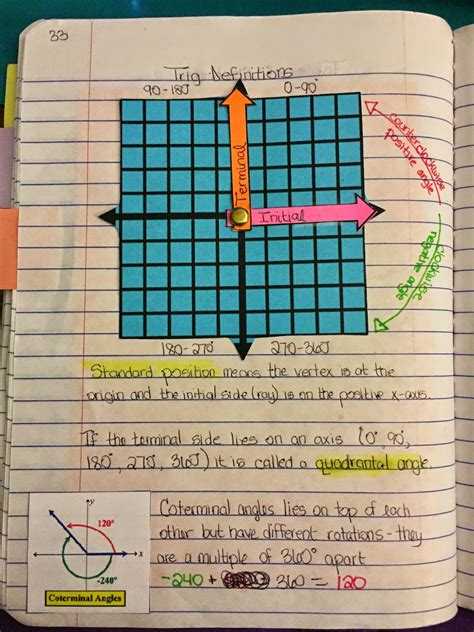 33
Trig Definitions
90-180° 0-90°
counterclockwise
positive angle
Terminal
Initial
clockwise
negative angle
180-270° 270-360°
Standard position means the vertex is at the
origin and the initial side (ray) is on the positive x-axis.
If the terminal side lies on an axis (0°, 90°,
180°, 270°, 360°) it is called a quadrantal angle.
Coterminal angles lies on top of each
other but have different rotations - they
are a multiple of 360° apart
-240 + 360 = 120
+y
120°
x
-240°
Coterminal Angles